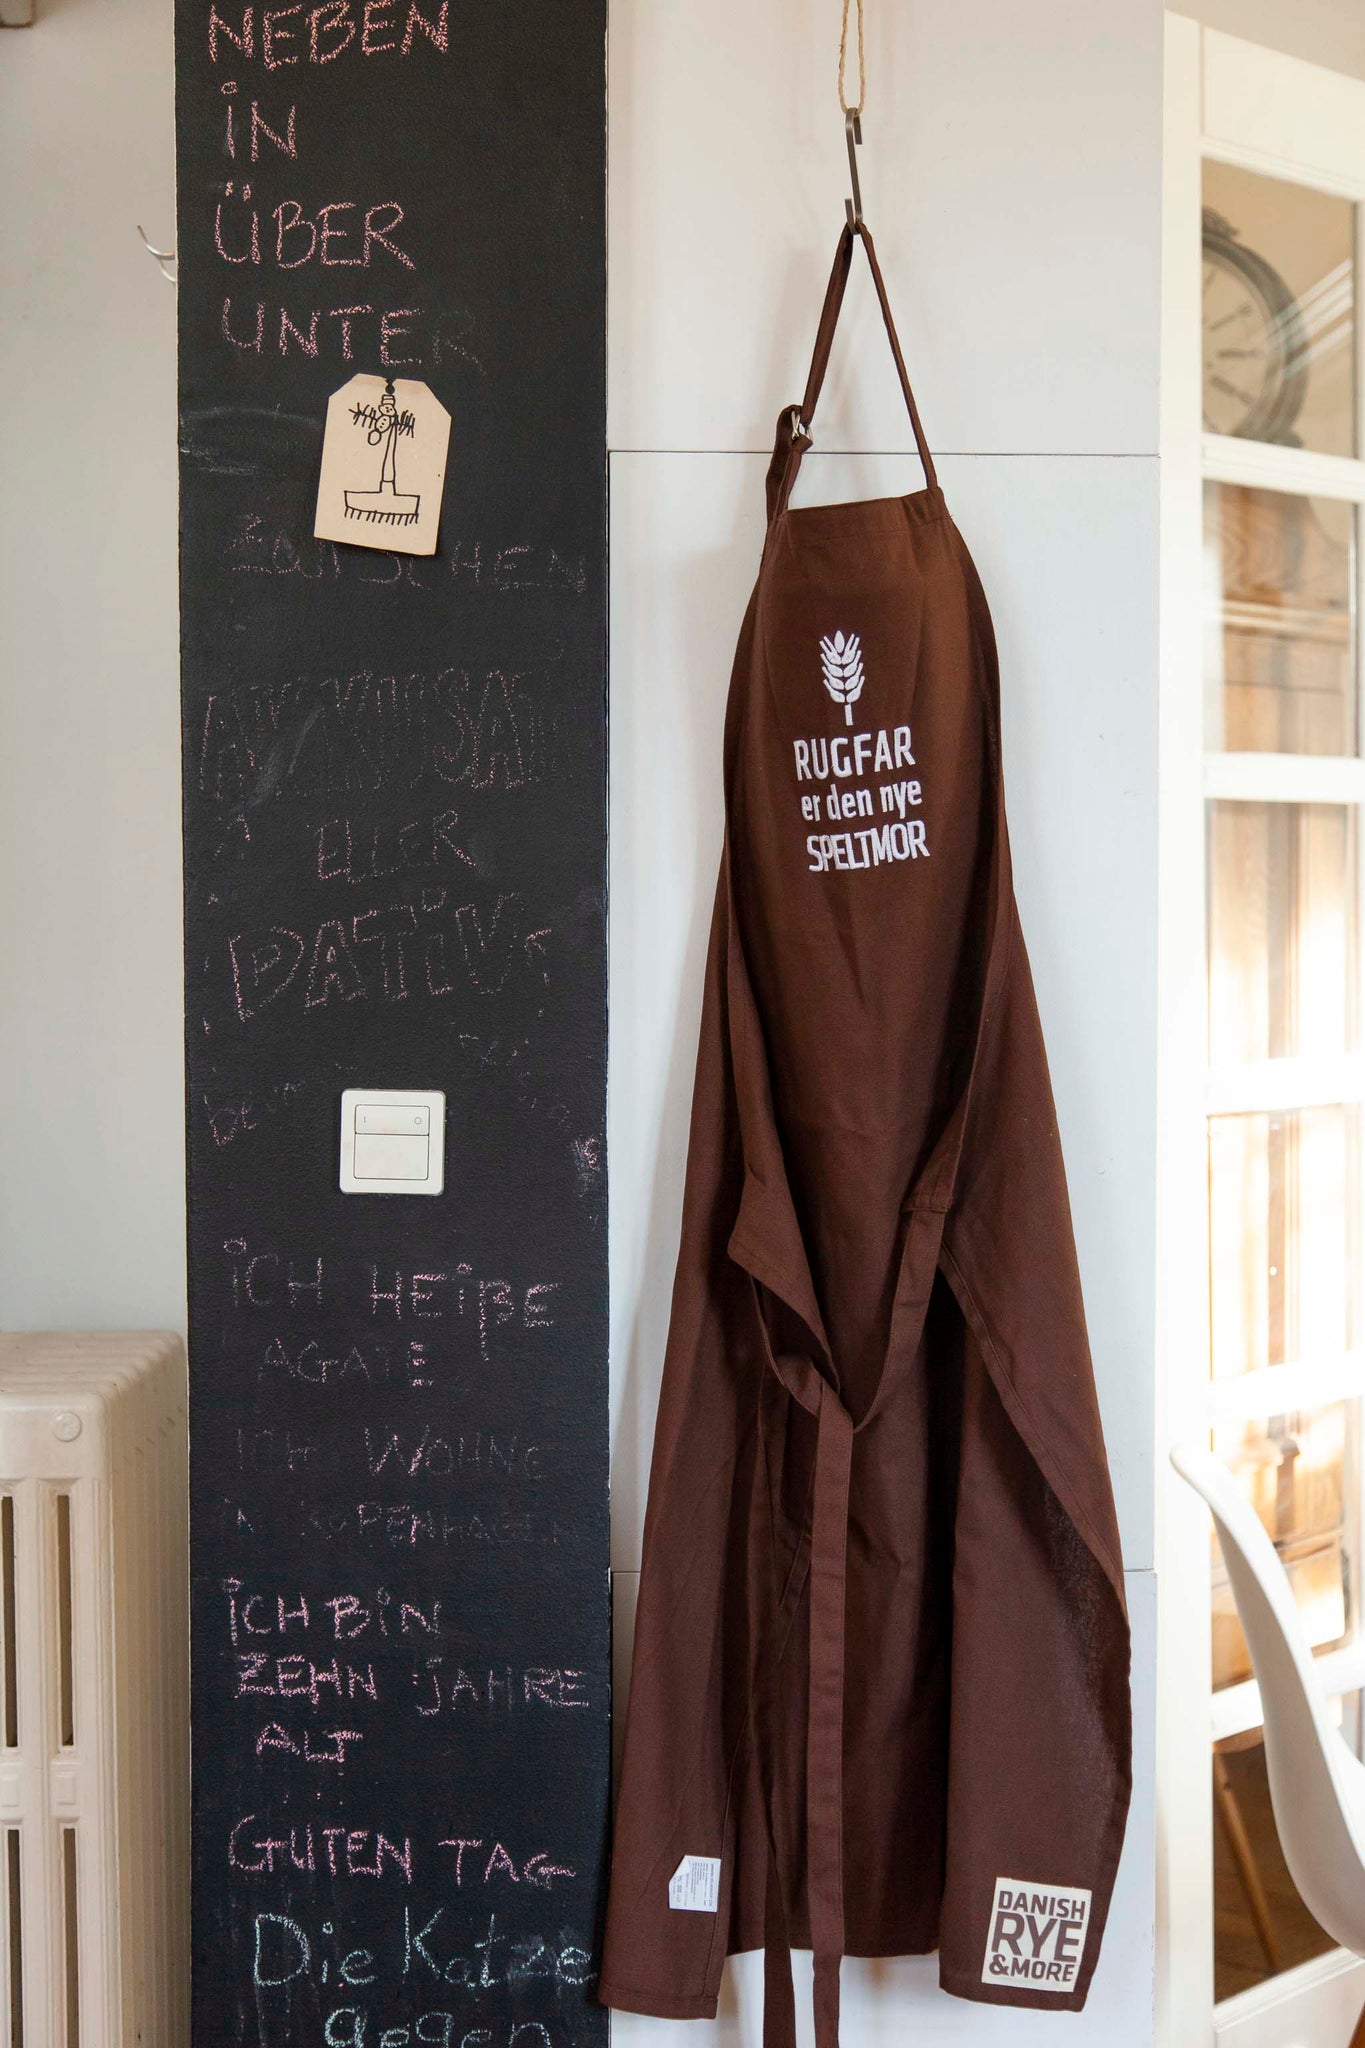 NEBEN
IN
ÜBER
UNTER
ZWISCHEN
ELLER
DATIV
ICH HEIßE
AGATE
ICH WOHNE
KOPENHAGEN
ICH BIN
ZEHN JAHRE
ALT
GUTEN TAG
Die Katze
gegen
RUGFAR
er den nye
SPELTMOR
DANISH
RYE
&MORE